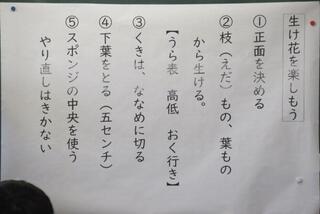 生け花を楽しもう
①正面を決める
②枝（えだ）もの、葉もの
から生ける。
【うら表　高低　おく行き】
③くきは、ななめに切る
④下葉をとる（五センチ）
⑤スポンジの中央を使う
やり直しはきかない